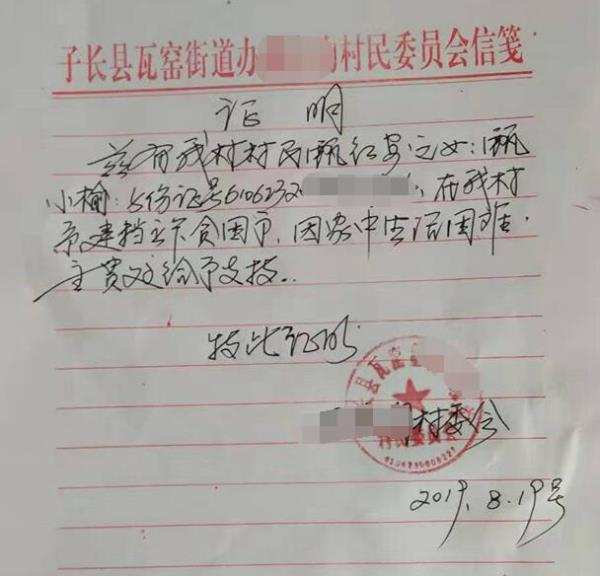 子长县瓦窑街道办 村民委员会信笺
证 明
兹有我村村民甄红安之女:甄
小榆:身份证号6106232 ,在我村
系建档立卡贫困户,因家中生活困难.
主贵校给予支持..
特此证明
长县瓦窑
村委会
村民委员会
2019.8.19号